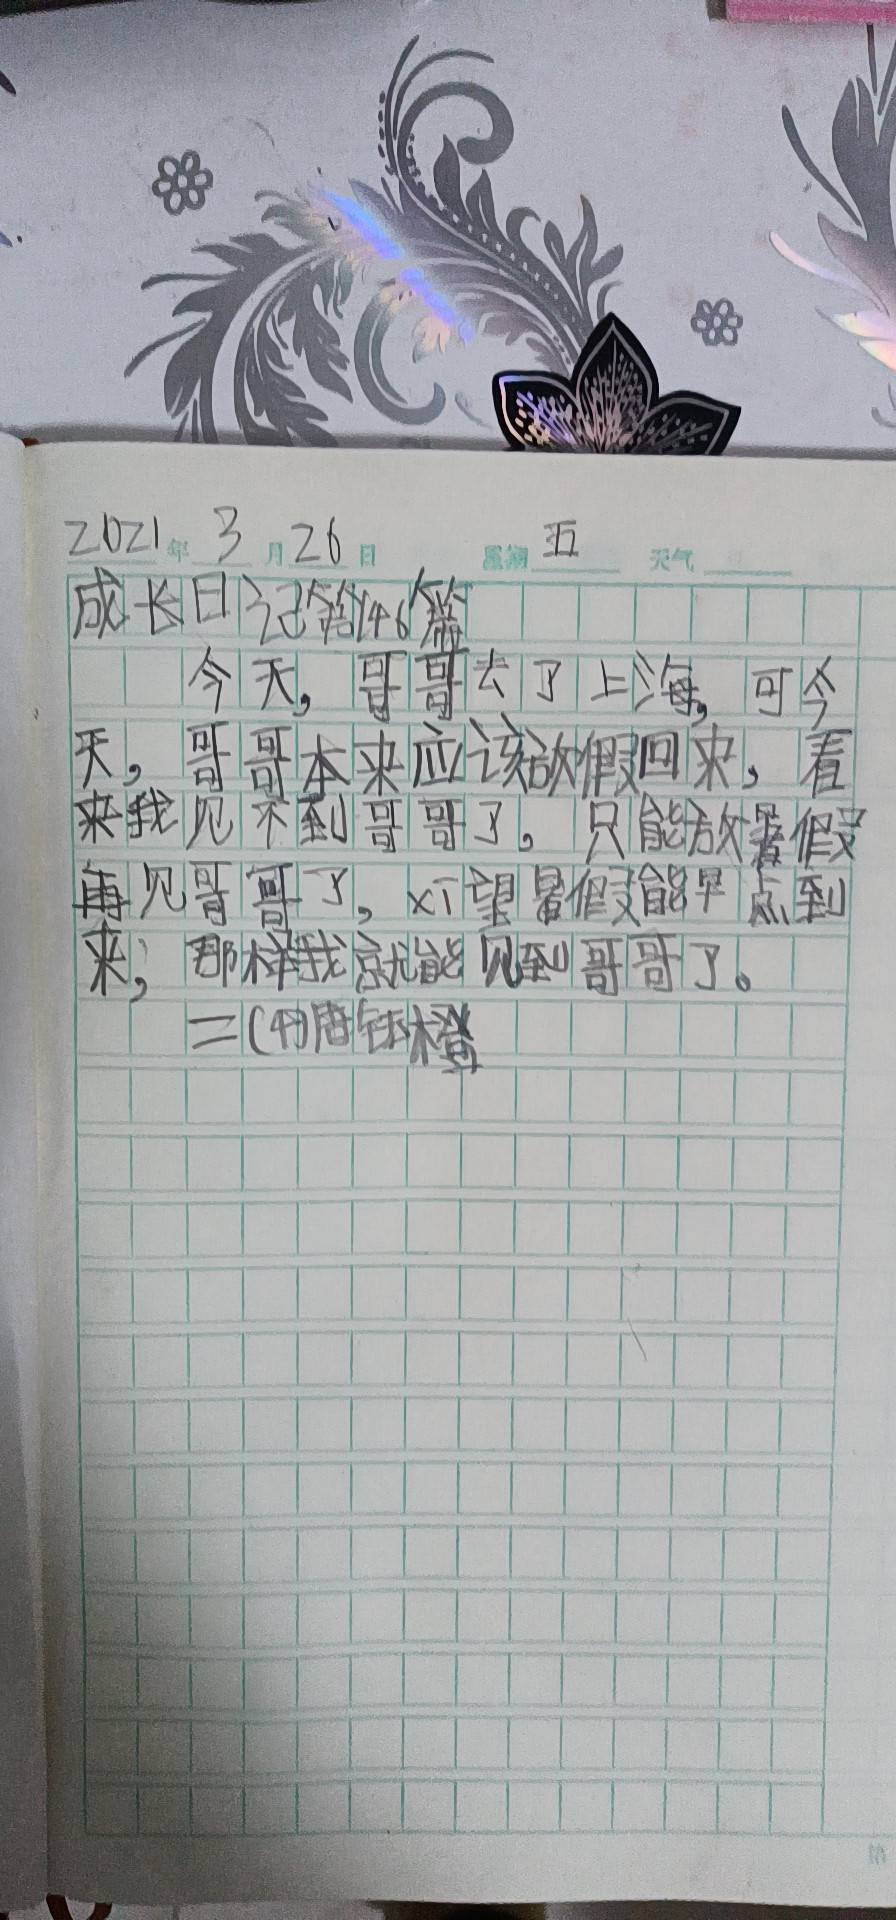 2021年3月26日 星期五 天气
成长日记第146篇
今天，哥哥去了上海，可今
天，哥哥本来应该放假回来，看
来我见不到哥哥了。只能放暑假
再见哥哥了，对望暑假能早点到
来，那样我就能见到哥哥了。
二(4)唐钰橙